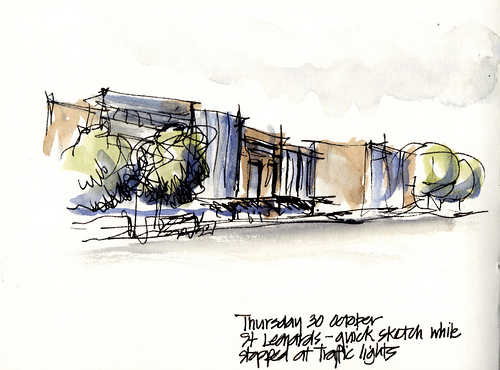 Thursday 30 October
St Leonards - quick sketch while
stopped at traffic lights